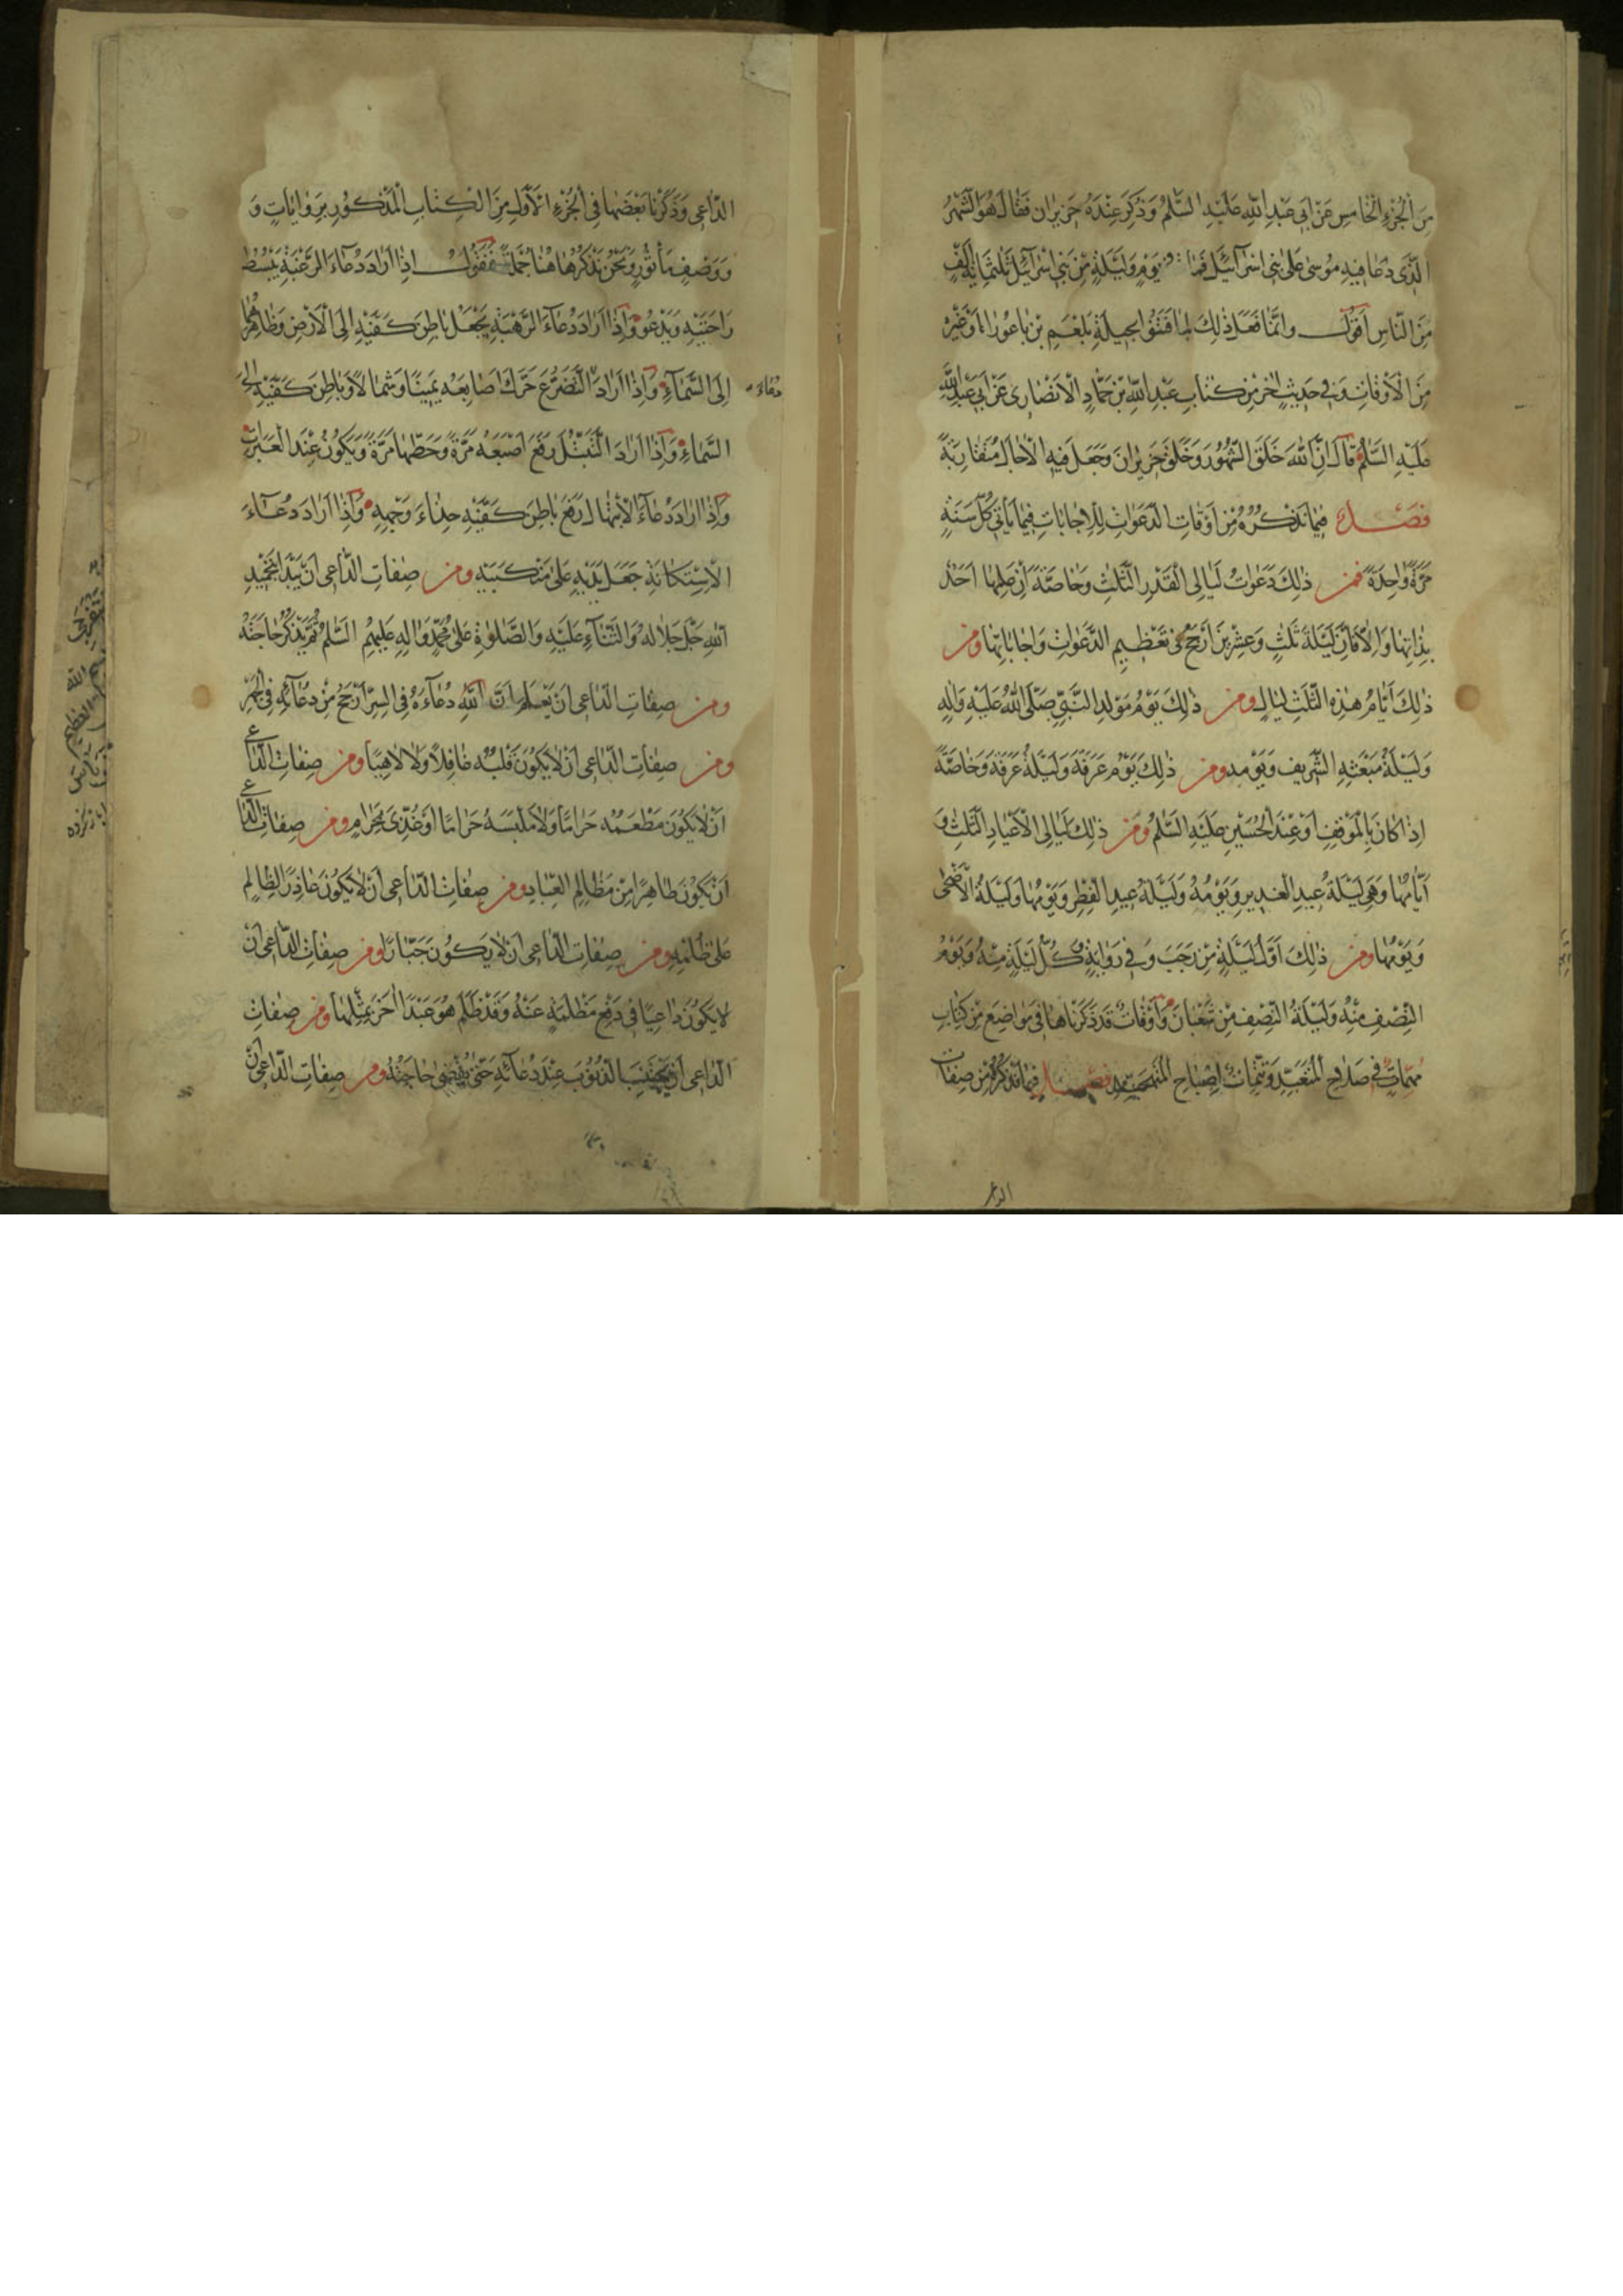 مِنَ الْجُزْءِ الْخَامِسِ عَنْ اَبِي عَبْدِ اللّٰهِ عَلَيْهِ السَّلٰمُ وَذُكِرَ عِنْدَهُ حَزِيرَان فَقَالَ هُوَ الشَّهْرُ
الَّذِى دَعَا فِيهِ مُوسٰى عَلٰى بَنِى اِسْرَآئِيلَ فَمَاتَ فِى يَوْمٍ وَلَيْلَةٍ مِنْ بَنِى اِسْرَآئِيلَ ثَلٰثُمِائَةِ اَلْفٍ
مِنَ النَّاسِ اَقُولُ وَاِنَّمَا فَعَلَ ذٰلِكَ لِمَا فَتَنُوا بِحِيلَةِ بَلْعَمِ بْنِ بَاعُورَاءَ وَغَيْرِهِ
مِنَ الْاَوْقَاتِ وَفِى حَدِيثٍ اٰخَرَ مِنْ كِتَابِ عَبْدِ اللّٰهِ بْنِ حَمَّادٍ الْاَنْصَارِى عَنْ اَبِى عَبْدِ اللّٰهِ
عَلَيْهِ السَّلٰمُ قَالَ اِنَّ اللّٰهَ خَلَقَ الشُّهُورَ وَخَلَقَ حَزِيرَانَ وَجَعَلَ فِيهِ الْاٰجَالَ مُتَقَارِبَةً
فَصْلٌ فِيمَا نَذْكُرُهُ مِنْ اَوْقَاتِ الدَّعَوَاتِ لِلْاِجَابَاتِ فِيمَا يَأْتِى كُلَّ سَنَةٍ
مَرَّةً وَاحِدَةً فَمِنْ ذٰلِكَ دَعَوَاتُ لَيَالِى الْقَدْرِ الثَّلٰثِ وَخَاصَّةً اِنْ عَلِمَهَا اَحَدٌ
بِذَاتِهَا وَاِلَّا فَاِنَّ لَيْلَةَ ثَلٰثٍ وَعِشْرِينَ اَرْجَحُ فِى تَعْظِيمِ الدَّعَوَاتِ وَاِجَابَاتِهَا وَمِنْ
ذٰلِكَ اَيَّامُ هٰذِهِ الثَّلٰثِ لَيَالٍ وَمِنْ ذٰلِكَ يَوْمُ مَوْلِدِ النَّبِىِّ صَلَّى اللّٰهُ عَلَيْهِ وَاٰلِهِ
وَلَيْلَةُ مَبْعَثِهِ الشَّرِيفِ وَيَوْمِهِ وَمِنْ ذٰلِكَ يَوْمُ عَرَفَةَ وَلَيْلَةُ عَرَفَةَ وَخَاصَّةً
اِذَا كَانَ بِالْمَوْقِفِ اَوْ عِنْدَ الْحُسَيْنِ عَلَيْهِ السَّلٰمُ وَمِنْ ذٰلِكَ لَيَالِى الْاَعْيَادِ الثَّلٰثِ وَ
اَيَّامُهَا وَهِىَ لَيْلَةُ عِيدِ الْغَدِيرِ وَيَوْمُهُ وَلَيْلَةُ عِيدِ الْفِطْرِ وَيَوْمُهَا وَلَيْلَةُ الْاَضْحٰى
وَيَوْمُهَا وَمِنْ ذٰلِكَ اَوَّلُ لَيْلَةٍ مِنْ رَجَبَ وَفِى رِوَايَةٍ كُلُّ لَيْلَةٍ مِنْهُ وَيَوْمُ
النِّصْفِ مِنْهُ وَلَيْلَةُ النِّصْفِ مِنْ شَعْبَانَ وَاَوْقَاتٌ قَدْ ذَكَرْنَاهَا فِى مَوَاضِعَ مِنْ كِتَابِ
مُهِمَّاتٍ فِى صَلَاحِ الْمُتَعَبِّدِ وَتَتِمَّاتٌ لِمِصْبَاحِ الْمُتَهَجِّدِ فَصْلٌ فِيمَا نَذْكُرُهُ مِنْ صِفَاتِ
الداعى
الدَّاعِى وَذَكَرْنَا بَعْضَهَا فِى الْجُزْءِ الْاَوَّلِ مِنَ الْكِتَابِ الْمَذْكُورِ بِرِوَايَاتٍ وَ
وَوَصْفٍ مَأْثُورٍ وَنَحْنُ نَذْكُرُهَا هٰهُنَا جُمْلَةً فَنَقُولُ اِذَا اَرَادَ دُعَاءَ الرَّغْبَةِ يَبْسُطُ
رَاحَتَيْهِ وَيَدْعُو وَاِذَا اَرَادَ دُعَاءَ الرَّهْبَةِ يَجْعَلُ بَاطِنَ كَفَّيْهِ اِلَى الْاَرْضِ وَظَاهِرَهُمَا
اِلَى السَّمَآءِ وَاِذَا اَرَادَ التَّضَرُّعَ حَرَّكَ اَصَابِعَهُ يَمِينًا وَشِمَالًا وَبَاطِنَ كَفَّيْهِ اِلَى
دعاء
السَّمَاءِ وَاِذَا اَرَادَ التَّبَتُّلَ رَفَعَ اِصْبَعَهُ مَرَّةً وَحَطَّهَا مَرَّةً وَيَكُونُ عِنْدَ الْعَبَرَاتِ
وَاِذَا اَرَادَ دُعَاءَ الْاِبْتِهَالِ رَفَعَ بَاطِنَ كَفَّيْهِ حِذَاءَ وَجْهِهِ وَاِذَا اَرَادَ دُعَآءَ
الْاِسْتِكَانَةِ جَعَلَ يَدَيْهِ عَلٰى مَنْكِبَيْهِ وَمِنْ صِفَاتِ الدَّاعِى اَنْ يَبْدَأَ بِتَمْجِيدِ
اللّٰهِ جَلَّ جَلَالُهُ وَالثَّنَآءِ عَلَيْهِ وَالصَّلٰوةِ عَلٰى مُحَمَّدٍ وَاٰلِهِ عَلَيْهِمُ السَّلٰمُ ثُمَّ يَذْكُرُ حَاجَتَهُ
وَمِنْ صِفَاتِ الدَّاعِى اَنْ يَعْلَمَ اَنَّ دُعَآءَهُ فِى السِّرِّ اَرْجَحُ مِنْ دُعَآئِهِ فِى الْجَهْرِ
وَمِنْ صِفَاتِ الدَّاعِى اَنْ لَا يَكُونَ قَلْبُهُ غَافِلًا وَلَا لَاهِيًا وَمِنْ صِفَاتِ الدَّاعِى
اَنْ لَا يَكُونَ مَطْعَمُهُ حَرَامًا وَلَا مَلْبَسُهُ حَرَامًا اَوْ غُذِّىَ بِحَرَامٍ وَمِنْ صِفَاتِ الدَّاعِى
اَنْ يَكُونَ طَاهِرًا مِنْ مَظَالِمِ الْعِبَادِ وَمِنْ صِفَاتِ الدَّاعِى اَنْ لَا يَكُونَ عَاذِرَ الظَّالِمِ
عَلٰى ظُلْمِهِ وَمِنْ صِفَاتِ الدَّاعِى اَنْ لَا يَكُونَ جَبَّارًا وَمِنْ صِفَاتِ الدَّاعِى اَنْ
لَا يَكُونَ دَاعِيًا فِى دَفْعِ مَظْلِمَةٍ عَنْهُ وَقَدْ ظَلَمَ هُوَ عَبْدًا اٰخَرَ بِمِثْلِهَا وَمِنْ صِفَاتِ
الدَّاعِى اَنْ يَجْتَنِبَ الذُّنُوبَ عِنْدَ دُعَآئِهِ حَتّٰى يُقْضٰى حَاجَتُهُ وَمِنْ صِفَاتِ الدَّاعِى اَنْ